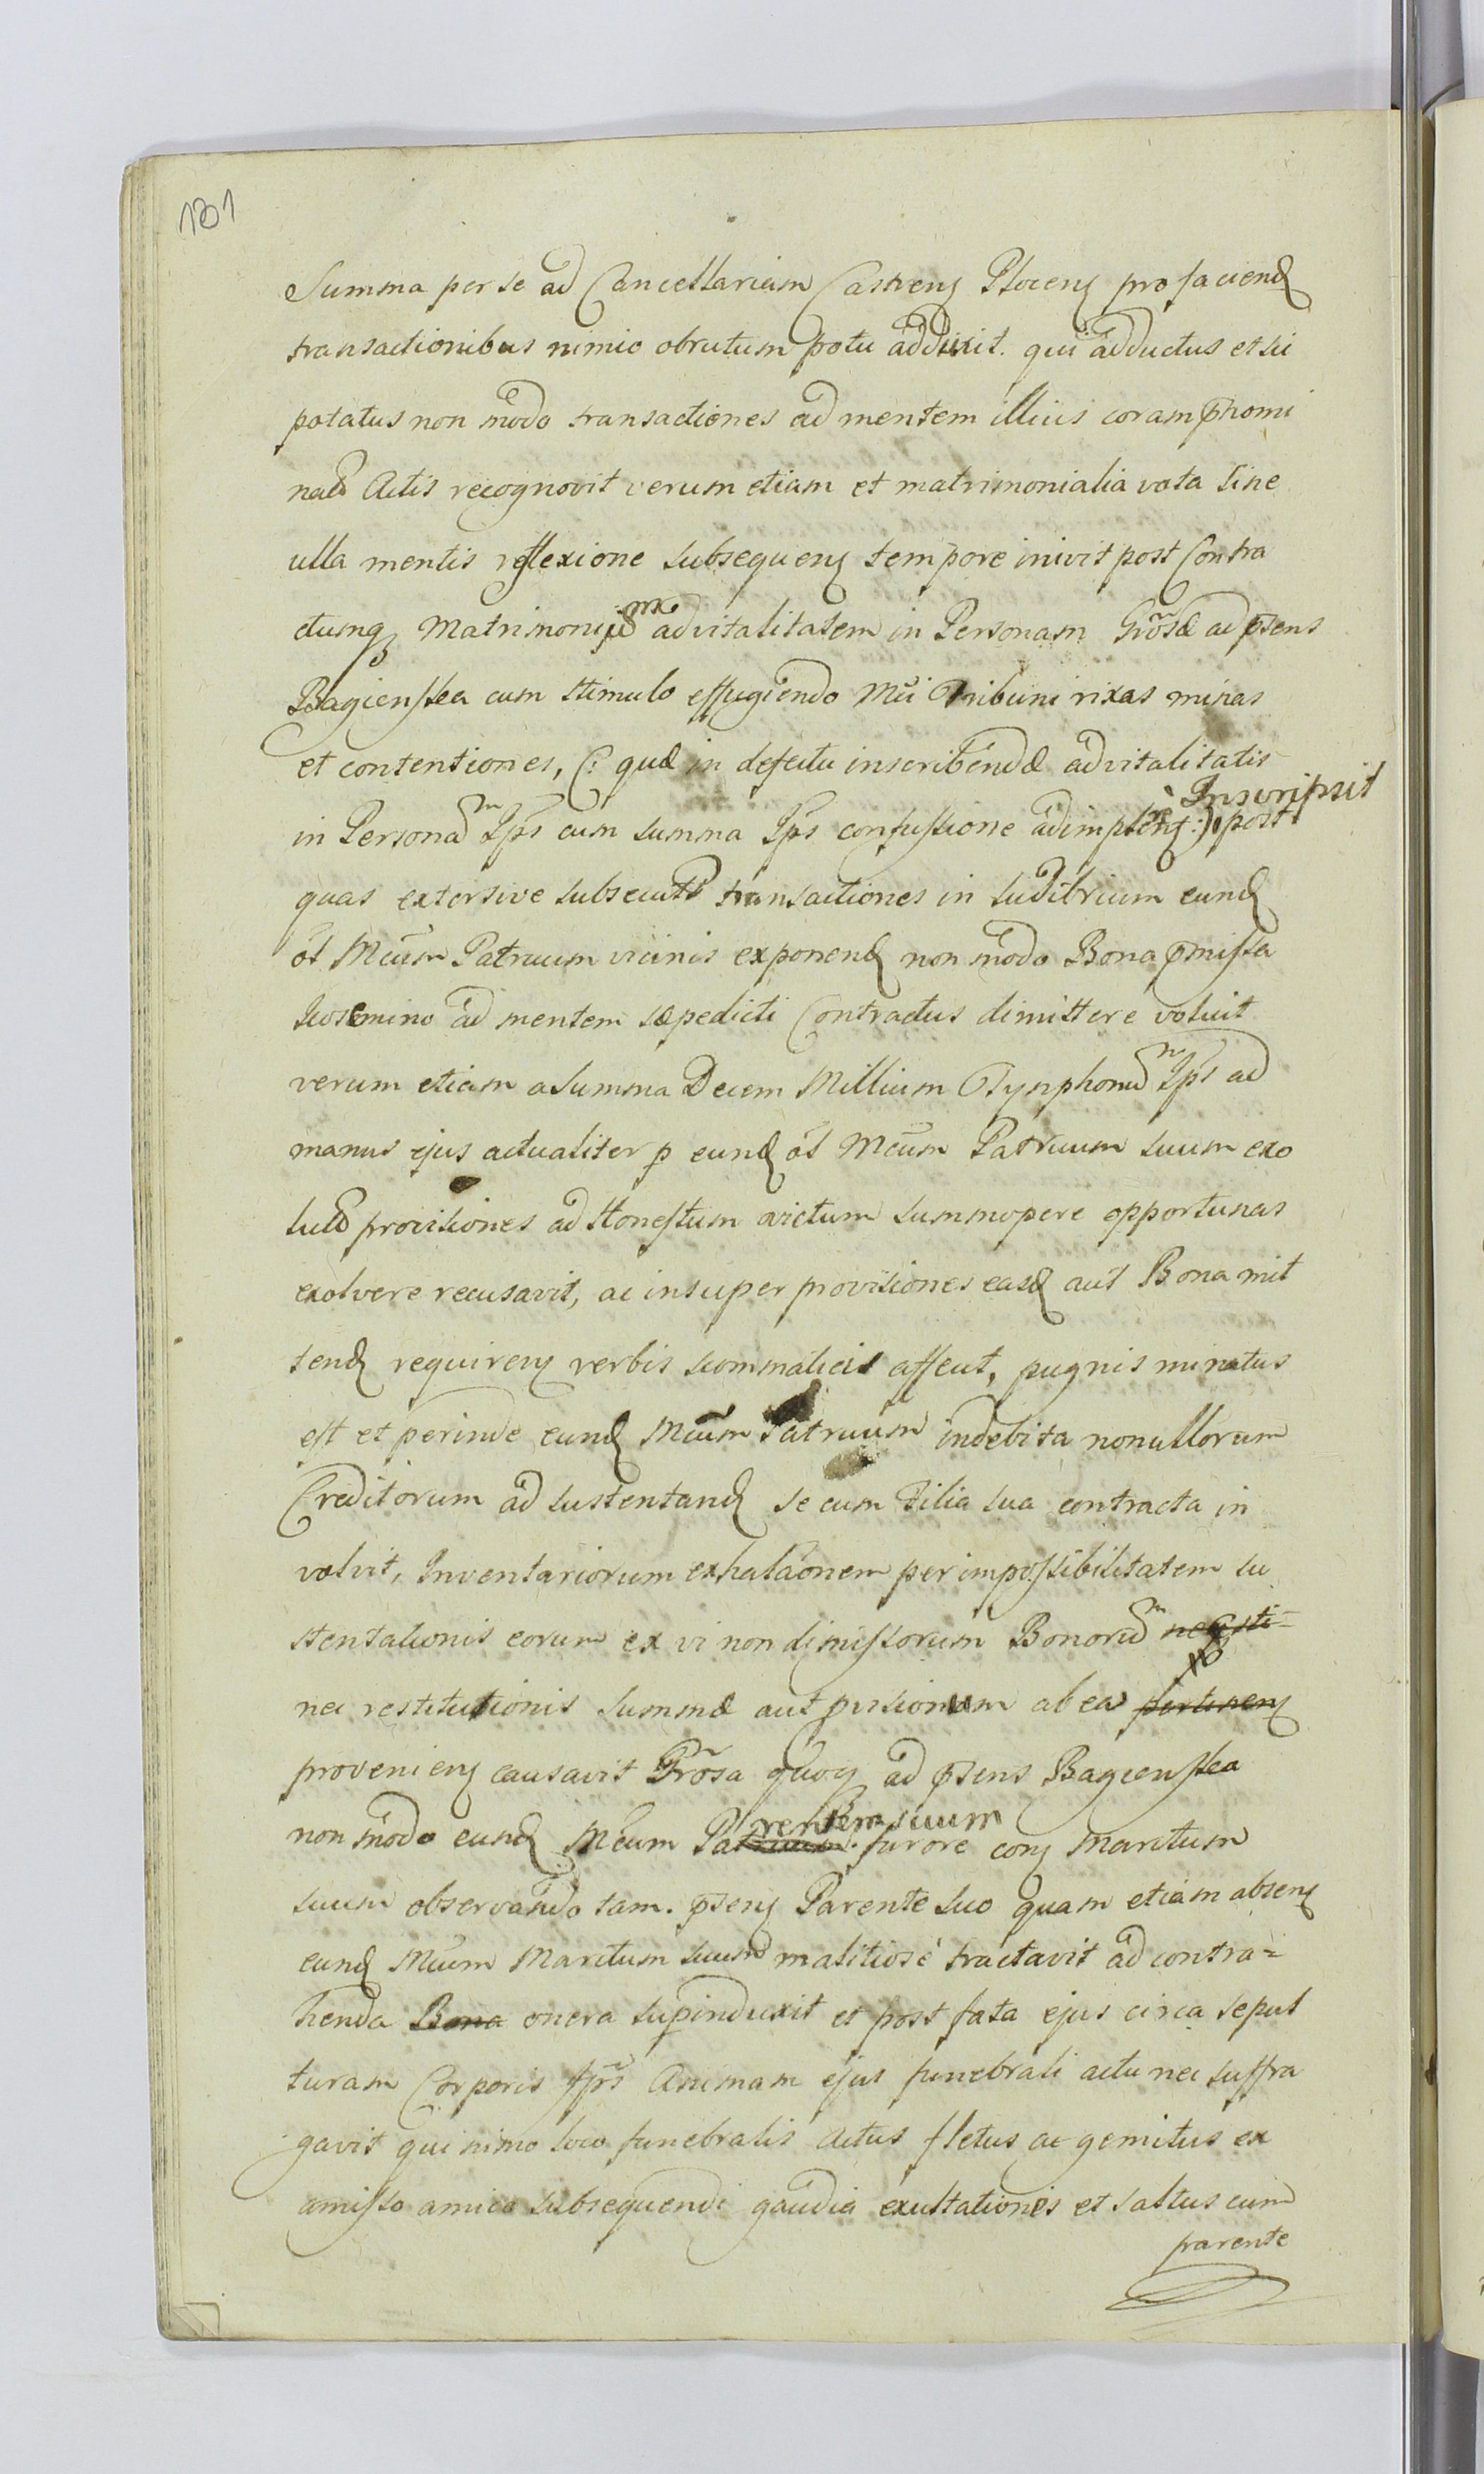 101
Summa per se ad Cancellariam Castrens Plocens pro faciend
transactionibus nimio obrutum potu adduxit. qui adductus et sii
potatus non modo transactiones ad mentem illius coram p̄nomi
natis Actis recognovit verum etiam et matrimonialia vota sine
ulla mentis reflexione subsequens tempore inivit post Contra
ctumq Matrimonij advitalitatem in Personam Grōsæ ad p̄sens
Bagienska cum stimulo effugiendo Mci Tribuni rixas minas
et contentiones, (: quæ in defectu inscribendæ advitalitatis
Inscripsit
in Personam Ips cum summa Ips confussione adimplens :) post
quas extorsive subsecutas transactiones in ludibrium eund
ol Mcum Patruum vicinis exponend non modo Bona p̄missa
ad mentem sæpedicti Contractus dimittere voluit
verum etiam a Summa Decem Millium Tynphonum Ips ad
manus ejus actualiter p eund ol Mcum Patruum suum exo
lutæ provisiones ad Honestum victum summopere opportunas
exolvere recusavit, ac insuper provisiones easd aut Bona mit
tend requirens verbis scommaticis affecit, pugnis minatus
est et perinde eund Mcum Patruum indebita nonullorum
Creditorum ad sustentand se cum Filia sua contracta in
volvit, Inventariorum exhalaōnem per impossibilitatem su
stentationis eorum ex vi non dimissorum Bonorum
nec restitutionis summæ aut p̄visionum ab ea pertinens
proveniens causavit Grōsa quoq ad p̄sens Bagienska
rentem suum
non modo eund Mcum Patruum furore conj Maritum
suum observando tam. p̄sens Parente suo quam etiam absens
eund Mcum Maritum suum malitiosè tractavit ad contra=
henda Bona onera supinduxit et post fata ejus circa sepul
turam Corporis Ips Animam ejus funebrali actu nec suffra
gavit quinimo loco funebralis Actus fletus ac gemitus ex
amisso amico subsequendi gaudia exultationis et saltus cum
parente